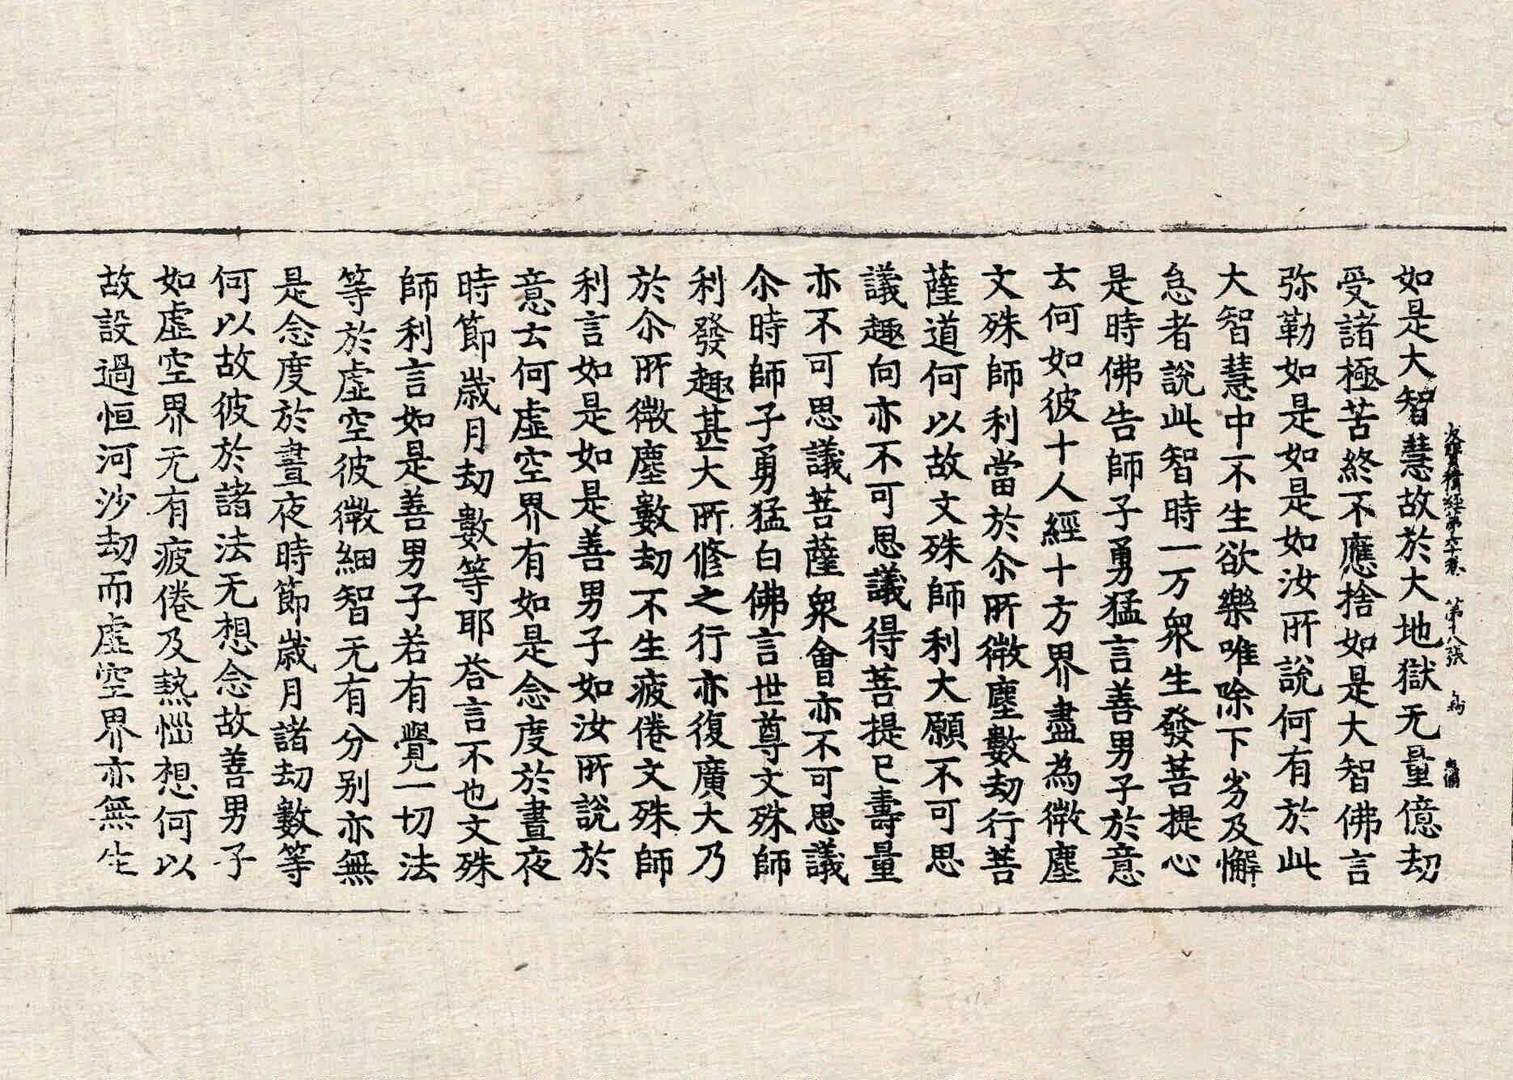 如是大智慧故於大地獄无量億劫
大寶積經第六十卷　第十八張　鳥
受諸極苦終不應捨如是大智佛言
弥勒如是如是如汝所說何有於此
大智慧中不生欲樂唯除下劣及懈
怠者說此智時一万衆生發菩提心
是時佛告師子勇猛言善男子於意
云何如彼十人經十方界盡為微塵
文殊師利當於尒所微塵數劫行菩
薩道何以故文殊師利大願不可思
議趣向亦不可思議得菩提已壽量
亦不可思議菩薩衆會亦不可思議
尒時師子勇猛白佛言世尊文殊師
利發趣甚大所修之行亦復廣大乃
於尒所微塵數劫不生疲倦文殊師
利言如是如是善男子如汝所說於
意云何虛空界有如是念度於晝夜
時節歲月劫數等耶荅言不也文殊
師利言如是善男子若有覺一切法
等於虛空彼微細智无有分別亦無
是念度於晝夜時節歲月諸劫數等
何以故彼於諸法无想念故善男子
如虛空界无有疲倦及熱惱想何以
故設過恒河沙劫而虛空界亦無生